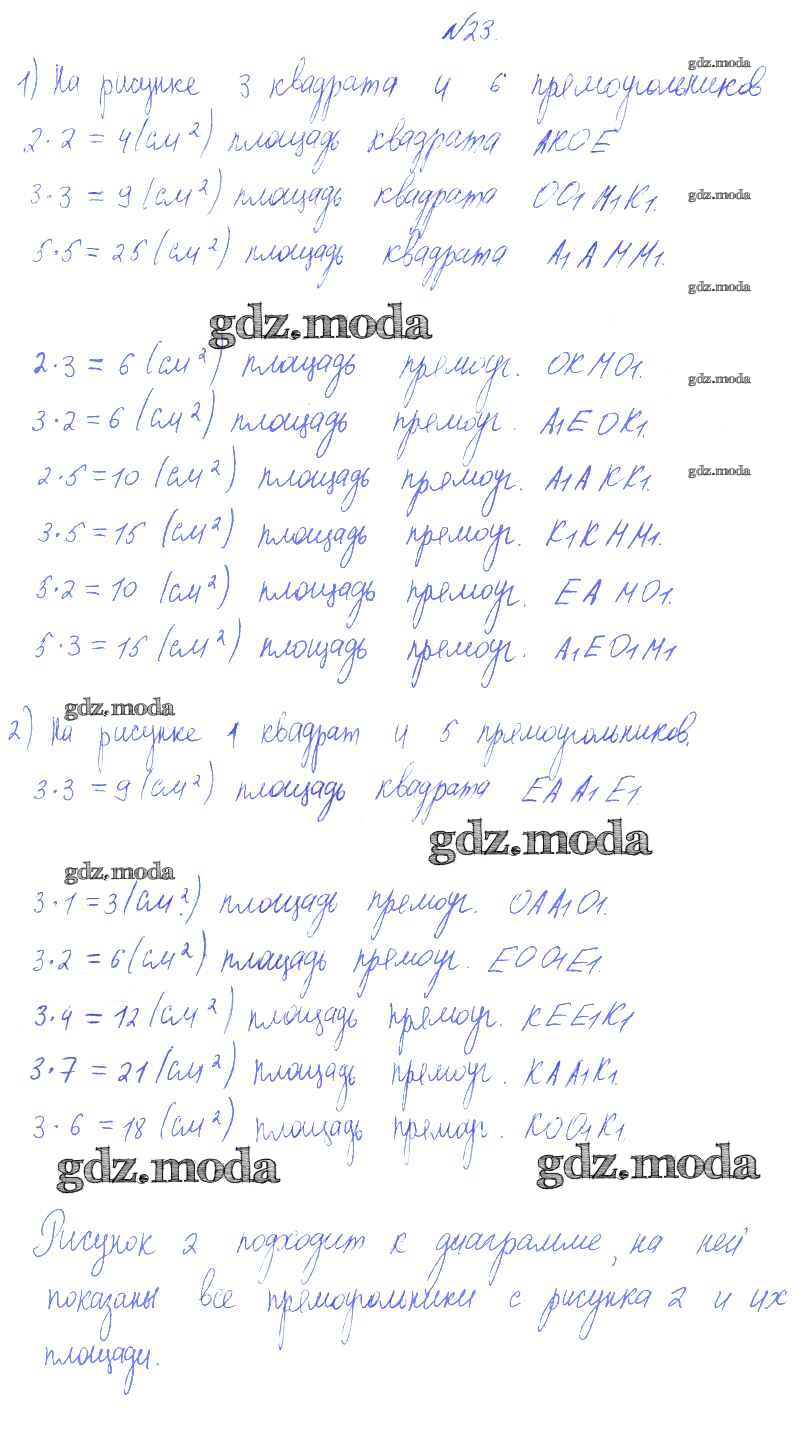 №23.
gdz.moda
1) На рисунке 3 квадрата и 6 прямоугольников
2·2=4(см²) площадь квадрата AKOE
3·3=9(см²) площадь квадрата OO1M1K1.
gdz.moda
5·5=25(см²) площадь квадрата A1AMM1.
gdz.moda
gdz.moda
2·3=6(см²) площадь прямоуг. OKMO1.
gdz.moda
3·2=6(см²) площадь прямоуг. A1EOK1.
2·5=10(см²) площадь прямоуг. A1AKK1.
gdz.moda
3·5=15(см²) площадь прямоуг. K1KMM1.
5·2=10(см²) площадь прямоуг. EAMO1.
5·3=15(см²) площадь прямоуг. A1EO1M1
gdz.moda
2) На рисунке 1 квадрат и 5 прямоугольников.
3·3=9(см²) площадь квадрата EAA1E1.
gdz.moda
gdz.moda
3·1=3(см²) площадь прямоуг. OAA1O1.
3·2=6(см²) площадь прямоуг. EOO1E1.
3·4=12(см²) площадь прямоуг. KEE1K1
3·7=21(см²) площадь прямоуг. KAA1K1.
3·6=18(см²) площадь прямоуг. KOO1K1.
gdz.moda
gdz.moda
Рисунок 2 подходит к диаграмме, на ней
показаны все прямоугольники с рисунка 2 и их
площади.